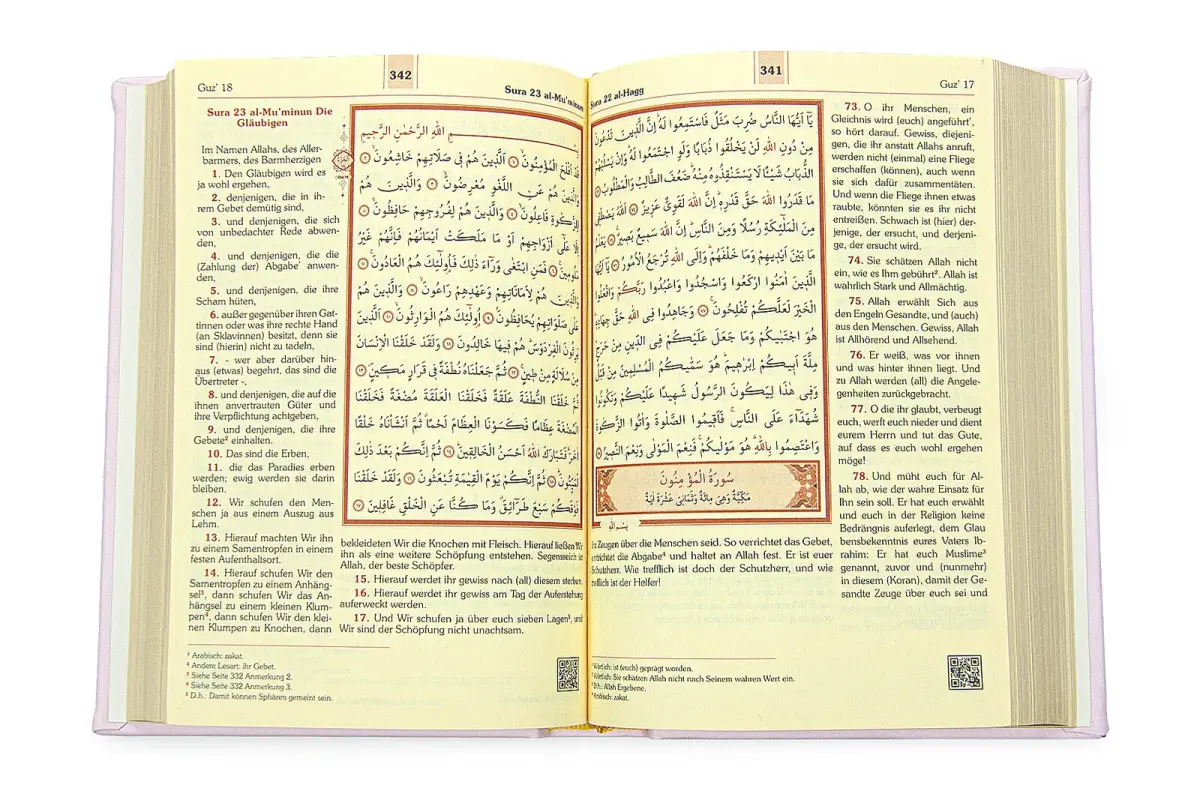 341
Guz' 17
Sura 22 al-Hagg
يَٓا اَيُّهَا النَّاسُ ضُرِبَ مَثَلٌ فَاسْتَمِعُوا لَهُ اِنَّ الَّذِينَ تَدْعُونَ
مِنْ دُونِ اللّٰهِ لَنْ يَخْلُقُوا ذُبَابًا وَلَوِ اجْتَمَعُوا لَهُ وَاِنْ يَسْلُبْهُمُ
الذُّبَابُ شَيْـًٔا لَا يَسْتَنْقِذُوهُ مِنْهُ ضَعُفَ الطَّالِبُ وَالْمَطْلُوبُ ٧٣
مَا قَدَرُوا اللّٰهَ حَقَّ قَدْرِهِ اِنَّ اللّٰهَ لَقَوِىٌّ عَزِيزٌ ٧٤ اَللّٰهُ يَصْطَفِى
مِنَ الْمَلٰٓئِكَةِ رُسُلًا وَمِنَ النَّاسِ اِنَّ اللّٰهَ سَمِيعٌ بَصِيرٌ ٧٥ يَعْلَمُ
مَا بَيْنَ اَيْدِيهِمْ وَمَا خَلْفَهُمْ وَاِلَى اللّٰهِ تُرْجَعُ الْاُمُورُ ٧٦ يَٓا اَيُّهَا
الَّذِينَ اٰمَنُوا ارْكَعُوا وَاسْجُدُوا وَاعْبُدُوا رَبَّكُمْ وَافْعَلُوا
الْخَيْرَ لَعَلَّكُمْ تُفْلِحُونَ ٧٧ وَجَاهِدُوا فِى اللّٰهِ حَقَّ جِهَادِهِ
هُوَ اجْتَبٰيكُمْ وَمَا جَعَلَ عَلَيْكُمْ فِى الدِّينِ مِنْ حَرَجٍ
مِلَّةَ اَبِيكُمْ اِبْرٰهِيمَ هُوَ سَمّٰيكُمُ الْمُسْلِمِينَ مِنْ قَبْلُ
وَفِى هٰذَا لِيَكُونَ الرَّسُولُ شَهِيدًا عَلَيْكُمْ وَتَكُونُوا
شُهَدَٓاءَ عَلَى النَّاسِ فَاَقِيمُوا الصَّلٰوةَ وَاٰتُوا الزَّكٰوةَ
وَاعْتَصِمُوا بِاللّٰهِ هُوَ مَوْلٰيكُمْ فَنِعْمَ الْمَوْلٰى وَنِعْمَ النَّصِيرُ ٧٨
سُورَةُ الْمُؤْمِنُونَ
مَكِّيَّةٌ وَهِىَ مِائَةٌ وَثَمَانِىَ عَشْرَةَ اٰيَةً
بِسْمِ اللّٰهِ
73. O ihr Menschen, ein
Gleichnis wird (euch) angeführt¹,
so hört darauf. Gewiss, diejeni-
gen, die ihr anstatt Allahs anruft,
werden nicht (einmal) eine Fliege
erschaffen (können), auch wenn
sie sich dafür zusammentäten.
Und wenn die Fliege ihnen etwas
raubte, könnten sie es ihr nicht
entreißen. Schwach ist (hier) der-
jenige, der ersucht, und derjeni-
ge, der ersucht wird.
74. Sie schätzen Allah nicht
ein, wie es Ihm gebührt². Allah ist
wahrlich Stark und Allmächtig.
75. Allah erwählt Sich aus
den Engeln Gesandte, und (auch)
aus den Menschen. Gewiss, Allah
ist Allhörend und Allsehend.
76. Er weiß, was vor ihnen
und was hinter ihnen liegt. Und
zu Allah werden (all) die Angele-
genheiten zurückgebracht.
77. O die ihr glaubt, verbeugt
euch, werft euch nieder und dient
eurem Herrn und tut das Gute,
auf dass es euch wohl ergehen
möge!
78. Und müht euch für Al-
lah ab, wie der wahre Einsatz für
Ihn sein soll. Er hat euch erwählt
und euch in der Religion keine
Bedrängnis auferlegt, dem Glau
bensbekenntnis eures Vaters Ib-
rahim: Er hat euch Muslime³
genannt, zuvor und (nunmehr)
in diesem (Koran), damit der Ge-
sandte Zeuge über euch sei und
ihr Zeugen über die Menschen seid. So verrichtet das Gebet,
entrichtet die Abgabe⁴ und haltet an Allah fest. Er ist euer
Schutzherr. Wie trefflich ist doch der Schutzherr, und wie
trefflich ist der Helfer!
¹ Wörtlich: ist (euch) geprägt worden.
² Wörtlich: Sie schätzen Allah nicht nach Seinem wahren Wert ein.
³ D.h.: Allah Ergebene.
⁴ Arabisch: zakat.
342
Guz' 18
Sura 23 al-Mu'minun
بِسْمِ اللّٰهِ الرَّحْمٰنِ الرَّحِيمِ
قَدْ اَفْلَحَ الْمُؤْمِنُونَ ١ اَلَّذِينَ هُمْ فِى صَلَاتِهِمْ خَاشِعُونَ ٢
وَالَّذِينَ هُمْ عَنِ اللَّغْوِ مُعْرِضُونَ ٣ وَالَّذِينَ هُمْ
لِلزَّكٰوةِ فَاعِلُونَ ٤ وَالَّذِينَ هُمْ لِفُرُوجِهِمْ حَافِظُونَ ٥
اِلَّا عَلٰٓى اَزْوَاجِهِمْ اَوْ مَا مَلَكَتْ اَيْمَانُهُمْ فَاِنَّهُمْ غَيْرُ
مَلُومِينَ ٦ فَمَنِ ابْتَغٰى وَرَٓاءَ ذٰلِكَ فَاُولٰٓئِكَ هُمُ الْعَادُونَ ٧
وَالَّذِينَ هُمْ لِاَمَانَاتِهِمْ وَعَهْدِهِمْ رَاعُونَ ٨ وَالَّذِينَ هُمْ
عَلٰى صَلَوَاتِهِمْ يُحَافِظُونَ ٩ اُولٰٓئِكَ هُمُ الْوَارِثُونَ ١٠ اَلَّذِينَ
يَرِثُونَ الْفِرْدَوْسَ هُمْ فِيهَا خَالِدُونَ ١١ وَلَقَدْ خَلَقْنَا الْاِنْسَانَ
مِنْ سُلَالَةٍ مِنْ طِينٍ ١٢ ثُمَّ جَعَلْنَاهُ نُطْفَةً فِى قَرَارٍ مَكِينٍ ١٣
ثُمَّ خَلَقْنَا النُّطْفَةَ عَلَقَةً فَخَلَقْنَا الْعَلَقَةَ مُضْغَةً فَخَلَقْنَا
الْمُضْغَةَ عِظَامًا فَكَسَوْنَا الْعِظَامَ لَحْمًا ثُمَّ اَنْشَاْنَاهُ خَلْقًا
اٰخَرَ فَتَبَارَكَ اللّٰهُ اَحْسَنُ الْخَالِقِينَ ١٤ ثُمَّ اِنَّكُمْ بَعْدَ ذٰلِكَ
لَمَيِّتُونَ ١٥ ثُمَّ اِنَّكُمْ يَوْمَ الْقِيٰمَةِ تُبْعَثُونَ ١٦ وَلَقَدْ خَلَقْنَا
فَوْقَكُمْ سَبْعَ طَرَٓائِقَ وَمَا كُنَّا عَنِ الْخَلْقِ غَافِلِينَ ١٧
Sura 23 al-Mu'minun Die
Gläubigen
Im Namen Allahs, des Aller-
barmers, des Barmherzigen
1. Den Gläubigen wird es
ja wohl ergehen,
2. denjenigen, die in ih-
rem Gebet demütig sind,
3. und denjenigen, die sich
von unbedachter Rede abwen-
den,
4. und denjenigen, die die
(Zahlung der) Abgabe¹ anwen-
den,
5. und denjenigen, die ihre
Scham hüten,
6. außer gegenüber ihren Gat-
tinnen oder was ihre rechte Hand
(an Sklavinnen) besitzt, denn sie
sind (hierin) nicht zu tadeln,
7. - wer aber darüber hin-
aus (etwas) begehrt, das sind die
Übertreter -,
8. und denjenigen, die auf die
ihnen anvertrauten Güter und
ihre Verpflichtung achtgeben,
9. und denjenigen, die ihre
Gebete² einhalten.
10. Das sind die Erben,
11. die das Paradies erben
werden; ewig werden sie darin
bleiben.
12. Wir schufen den Men-
schen ja aus einem Auszug aus
Lehm.
13. Hierauf machten Wir ihn
zu einem Samentropfen in einem
festen Aufenthaltsort.
14. Hierauf schufen Wir den
Samentropfen zu einem Anhäng-
sel³, dann schufen Wir das An-
hängsel zu einem kleinen Klum-
pen⁴, dann schufen Wir den klei-
nen Klumpen zu Knochen, dann
bekleideten Wir die Knochen mit Fleisch. Hierauf ließen Wir
ihn als eine weitere Schöpfung entstehen. Segensreich ist
Allah, der beste Schöpfer.
15. Hierauf werdet ihr gewiss nach (all) diesem sterben.
16. Hierauf werdet ihr gewiss am Tag der Auferstehung
auferweckt werden.
17. Und Wir schufen ja über euch sieben Lagen⁵, und
Wir sind der Schöpfung nicht unachtsam.
¹ Arabisch: zakat.
² Andere Lesart: ihr Gebet.
³ Siehe Seite 332 Anmerkung 2.
⁴ Siehe Seite 332 Anmerkung 3.
⁵ D.h.: Damit können Sphären gemeint sein.